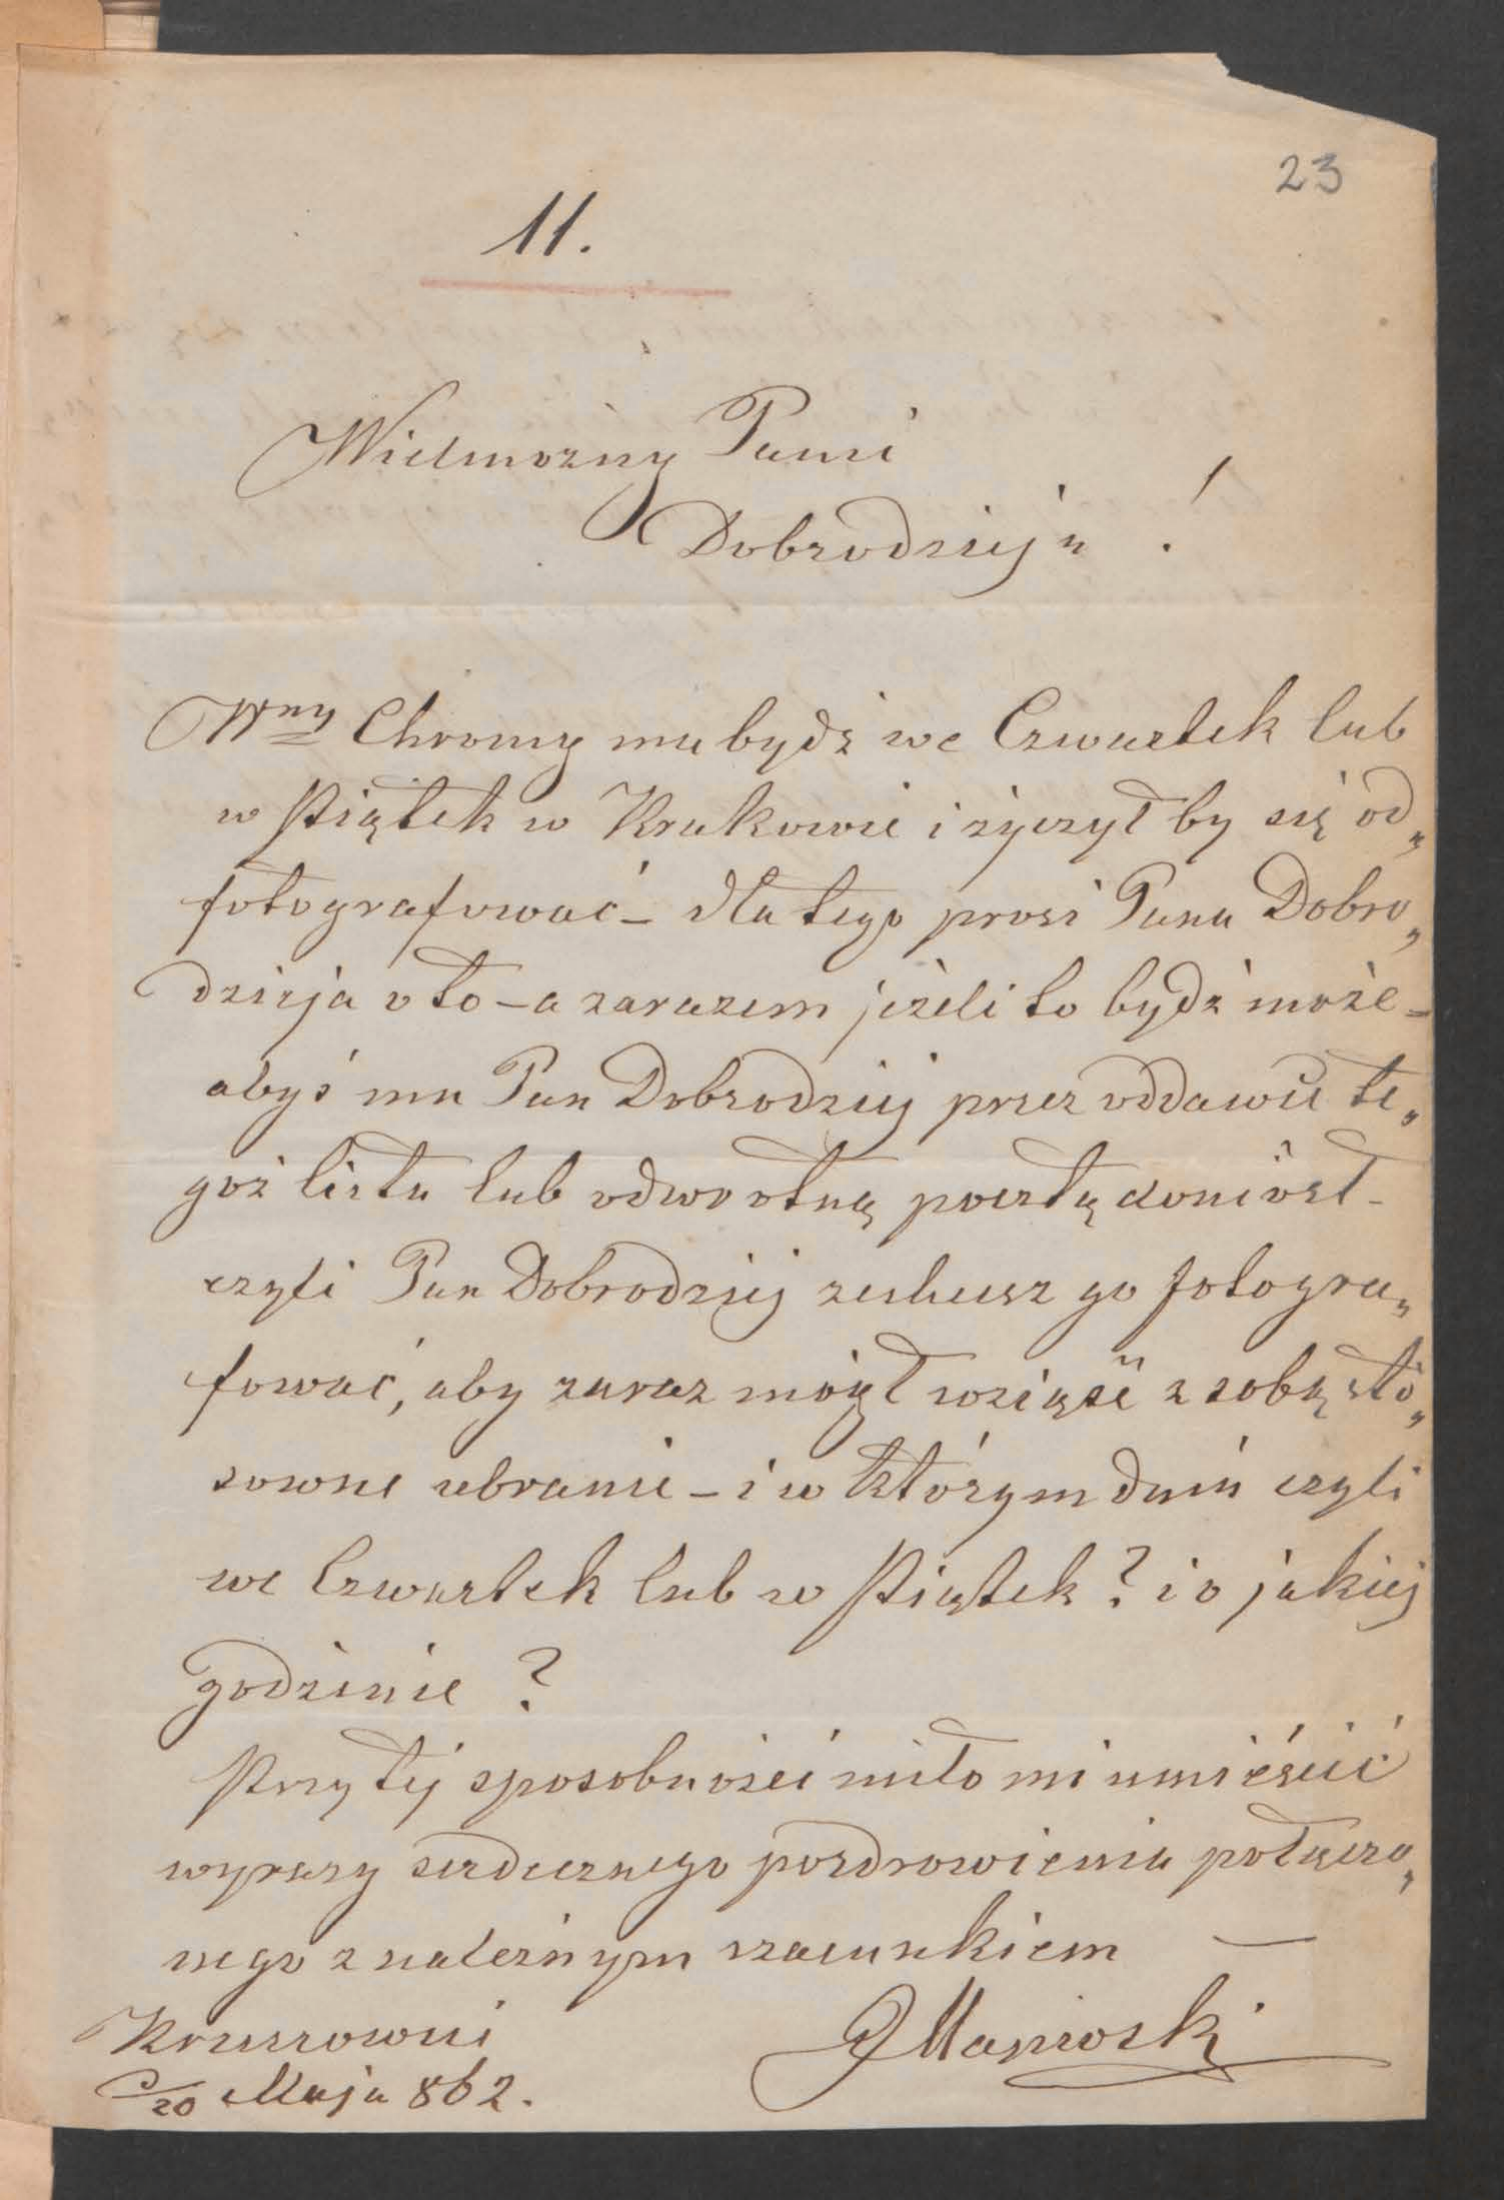 23
11.
Wielmożny Panie
Dobrodzieju !
Wny Chromy ma bydź we Czwartek lub
w Piątek w Krakowie i życzył by się od„
fotografować – dla tego prosi Pana Dobro„
dzieja o to – a zarazem jeżeli to bydź może –
abyś mu Pan Dobrodziej przez oddawcę te„
goż listu lub odwrotną pocztą doniósł –
czyli Pan Dobrodziej zechcesz go fotogra„
fować, aby zaraz mógł wziąść z sobą sto„
sowne ubranie – i w którym dniu czyli
we Czwartek lub w Piątek ? i o jakiej
godzinie ?
Przy tej sposobności miło mi umieścić
wyrazy serdecznego pozdrowienia połączo„
nego z należnym szacunkiem —
20 Maja 862.